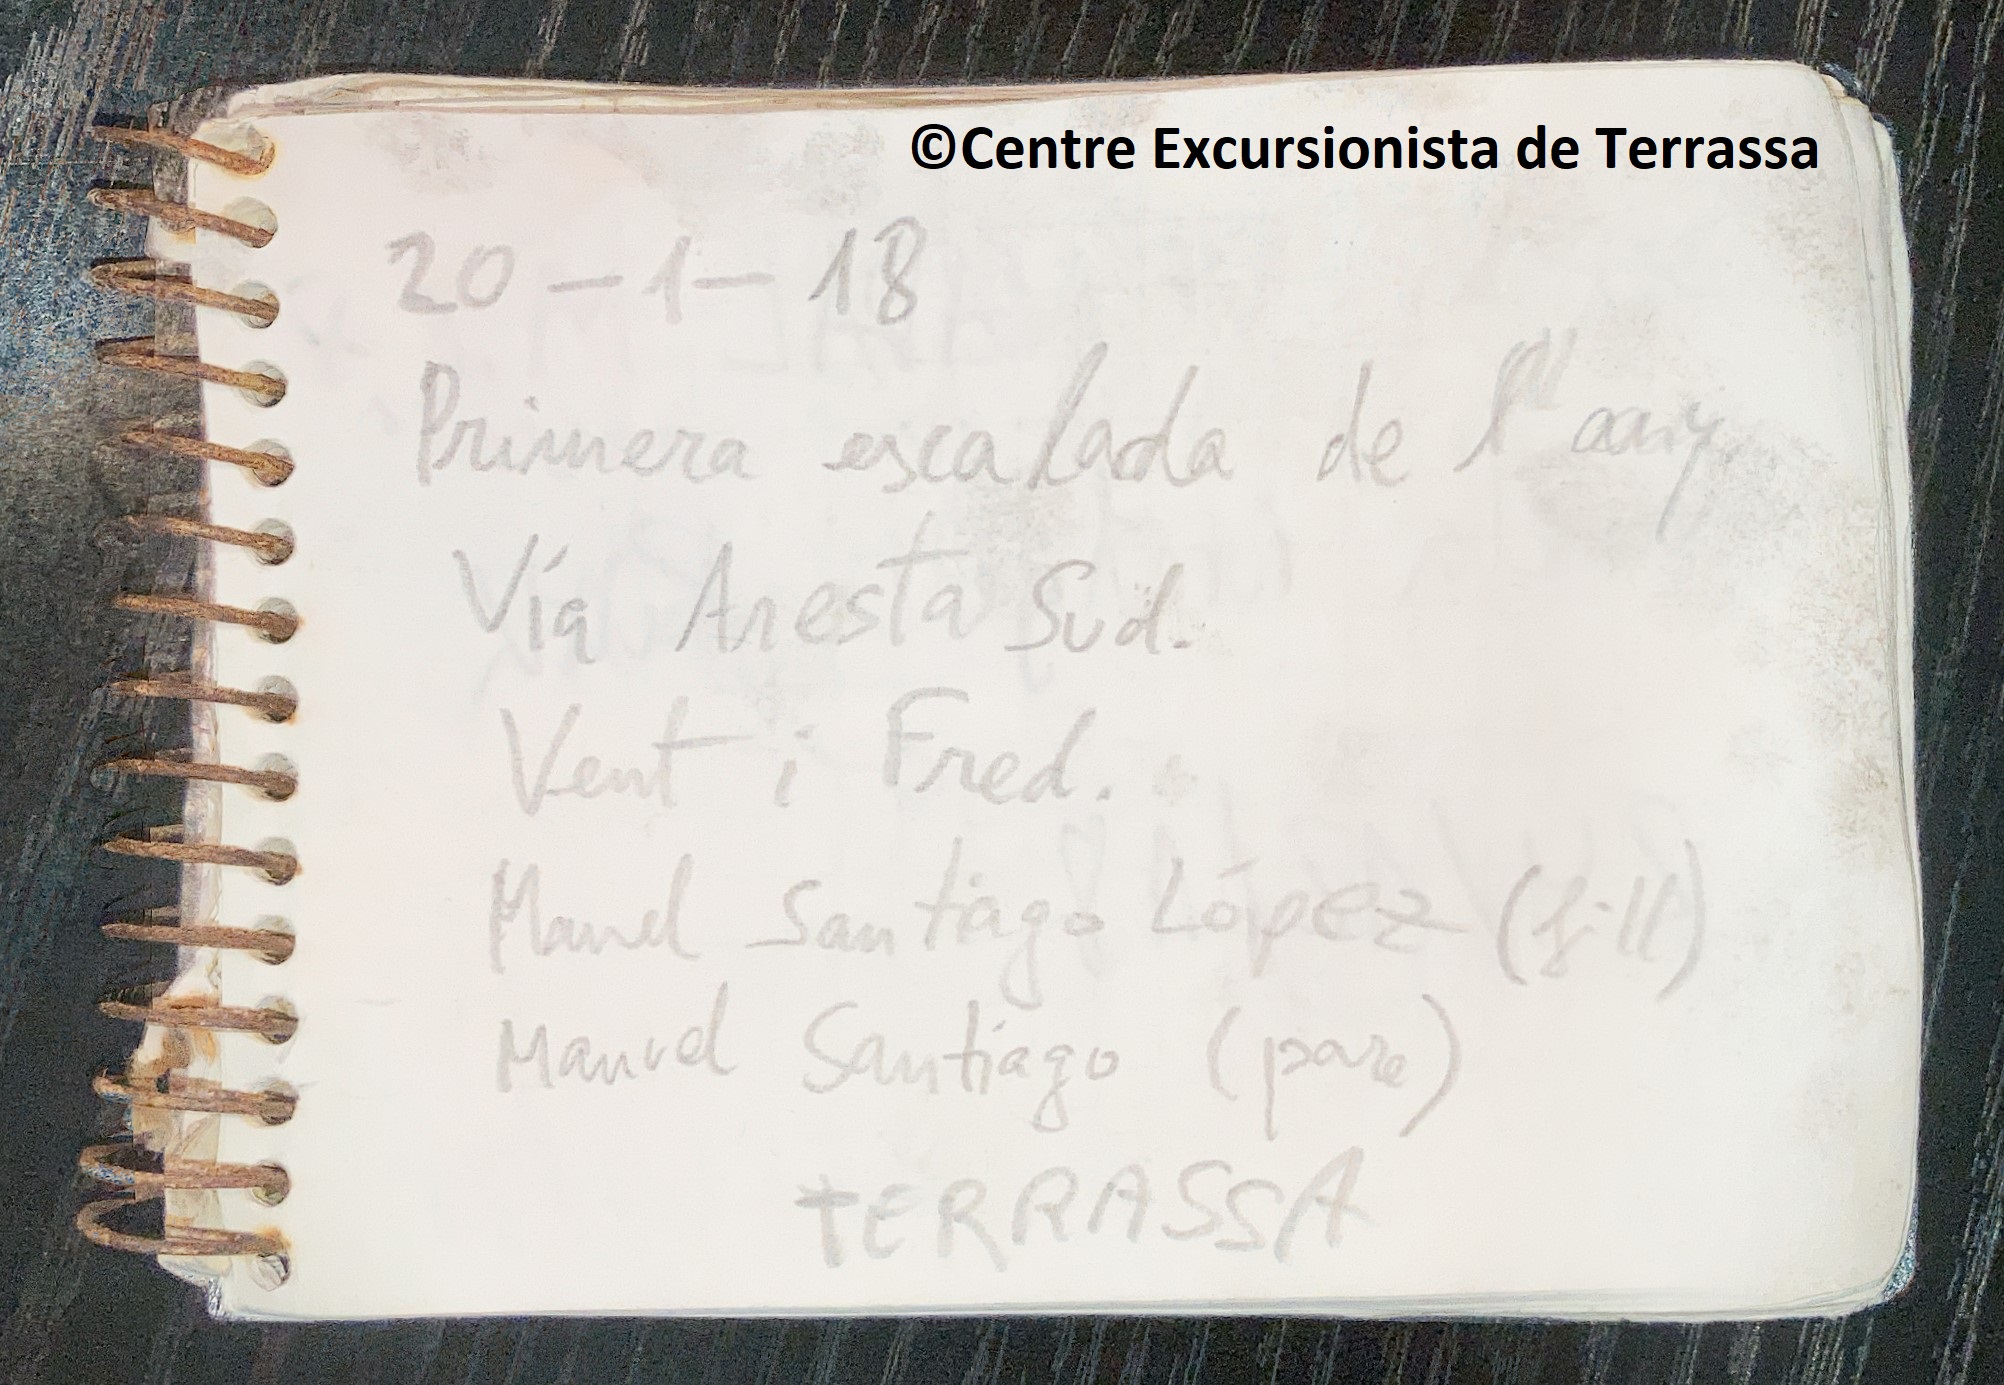 ©Centre Excursionista de Terrassa
20-1-18
Primera escalada de l'any.
Vía Aresta Sud.
Vent i Fred.
Manel Santiago López (fill)
Manuel Santiago (pare)
TERRASSA